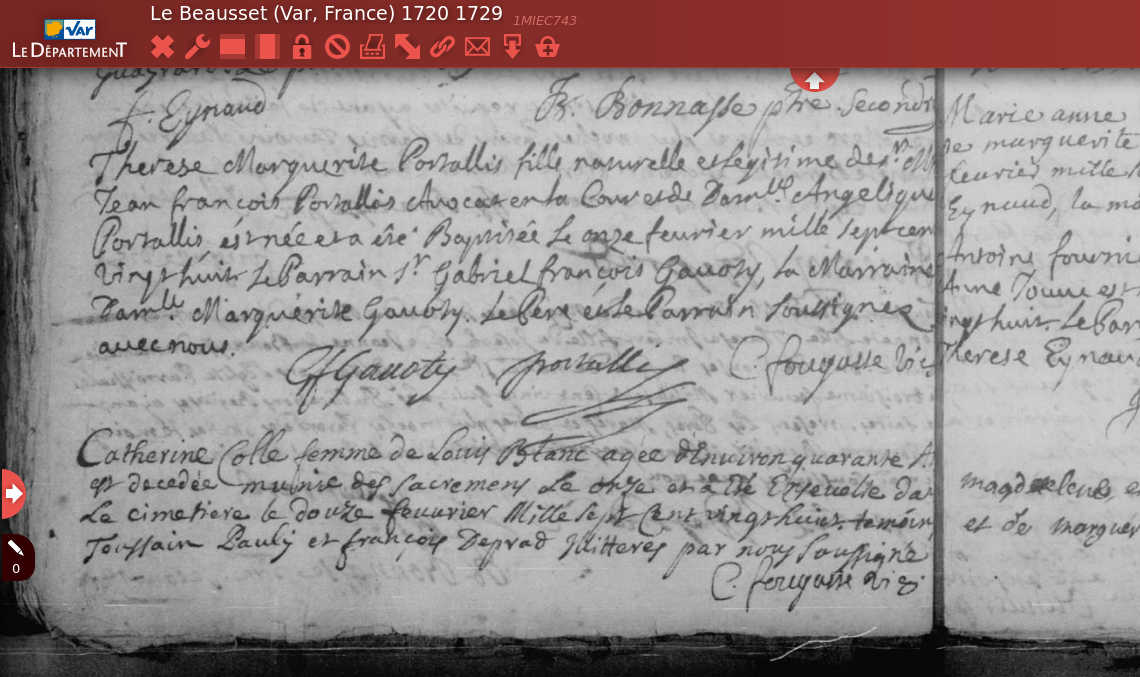 Le Beausset (Var, France) 1720 1729 1MIEC743
Var
LE DÉPARTEMENT
f. Eynaud B. Bonnasse ptre. Second
Therese Marguerite Portallis fille naturelle et legitime de sr. M
Jean françois Portallis Avocat en la Cour et de Damlle. Angelique
Portallis, est née et a été Baptisée Le onze feurier mille sept cen
vingt huit Le Parrain sr Gabriel françois Gavoty, la Marraine
Damlle Marguerite Gavoty. Le Pere et le Parrain soussignez
avec nous.
GfGavoty portallis C. fougasse vic.
Catherine Colle femme de Louis Blanc agee d'Environ quarante
est decedée munie des sacremens Le onze et à été Ensevelie da
Le cimetiere le douze feuvrier Mille sept Cent vingt huit temoin
Toussain Pauly et françois Deprad Illitteres par nous soussigné
C. fougasse vic.
Marie anne
marguerite
feurier mille
Eynaud, la ma
Antoine fourni
Anne
ingt huit. Le Par
Therese Eynau
magdeleine
et de marguer
0